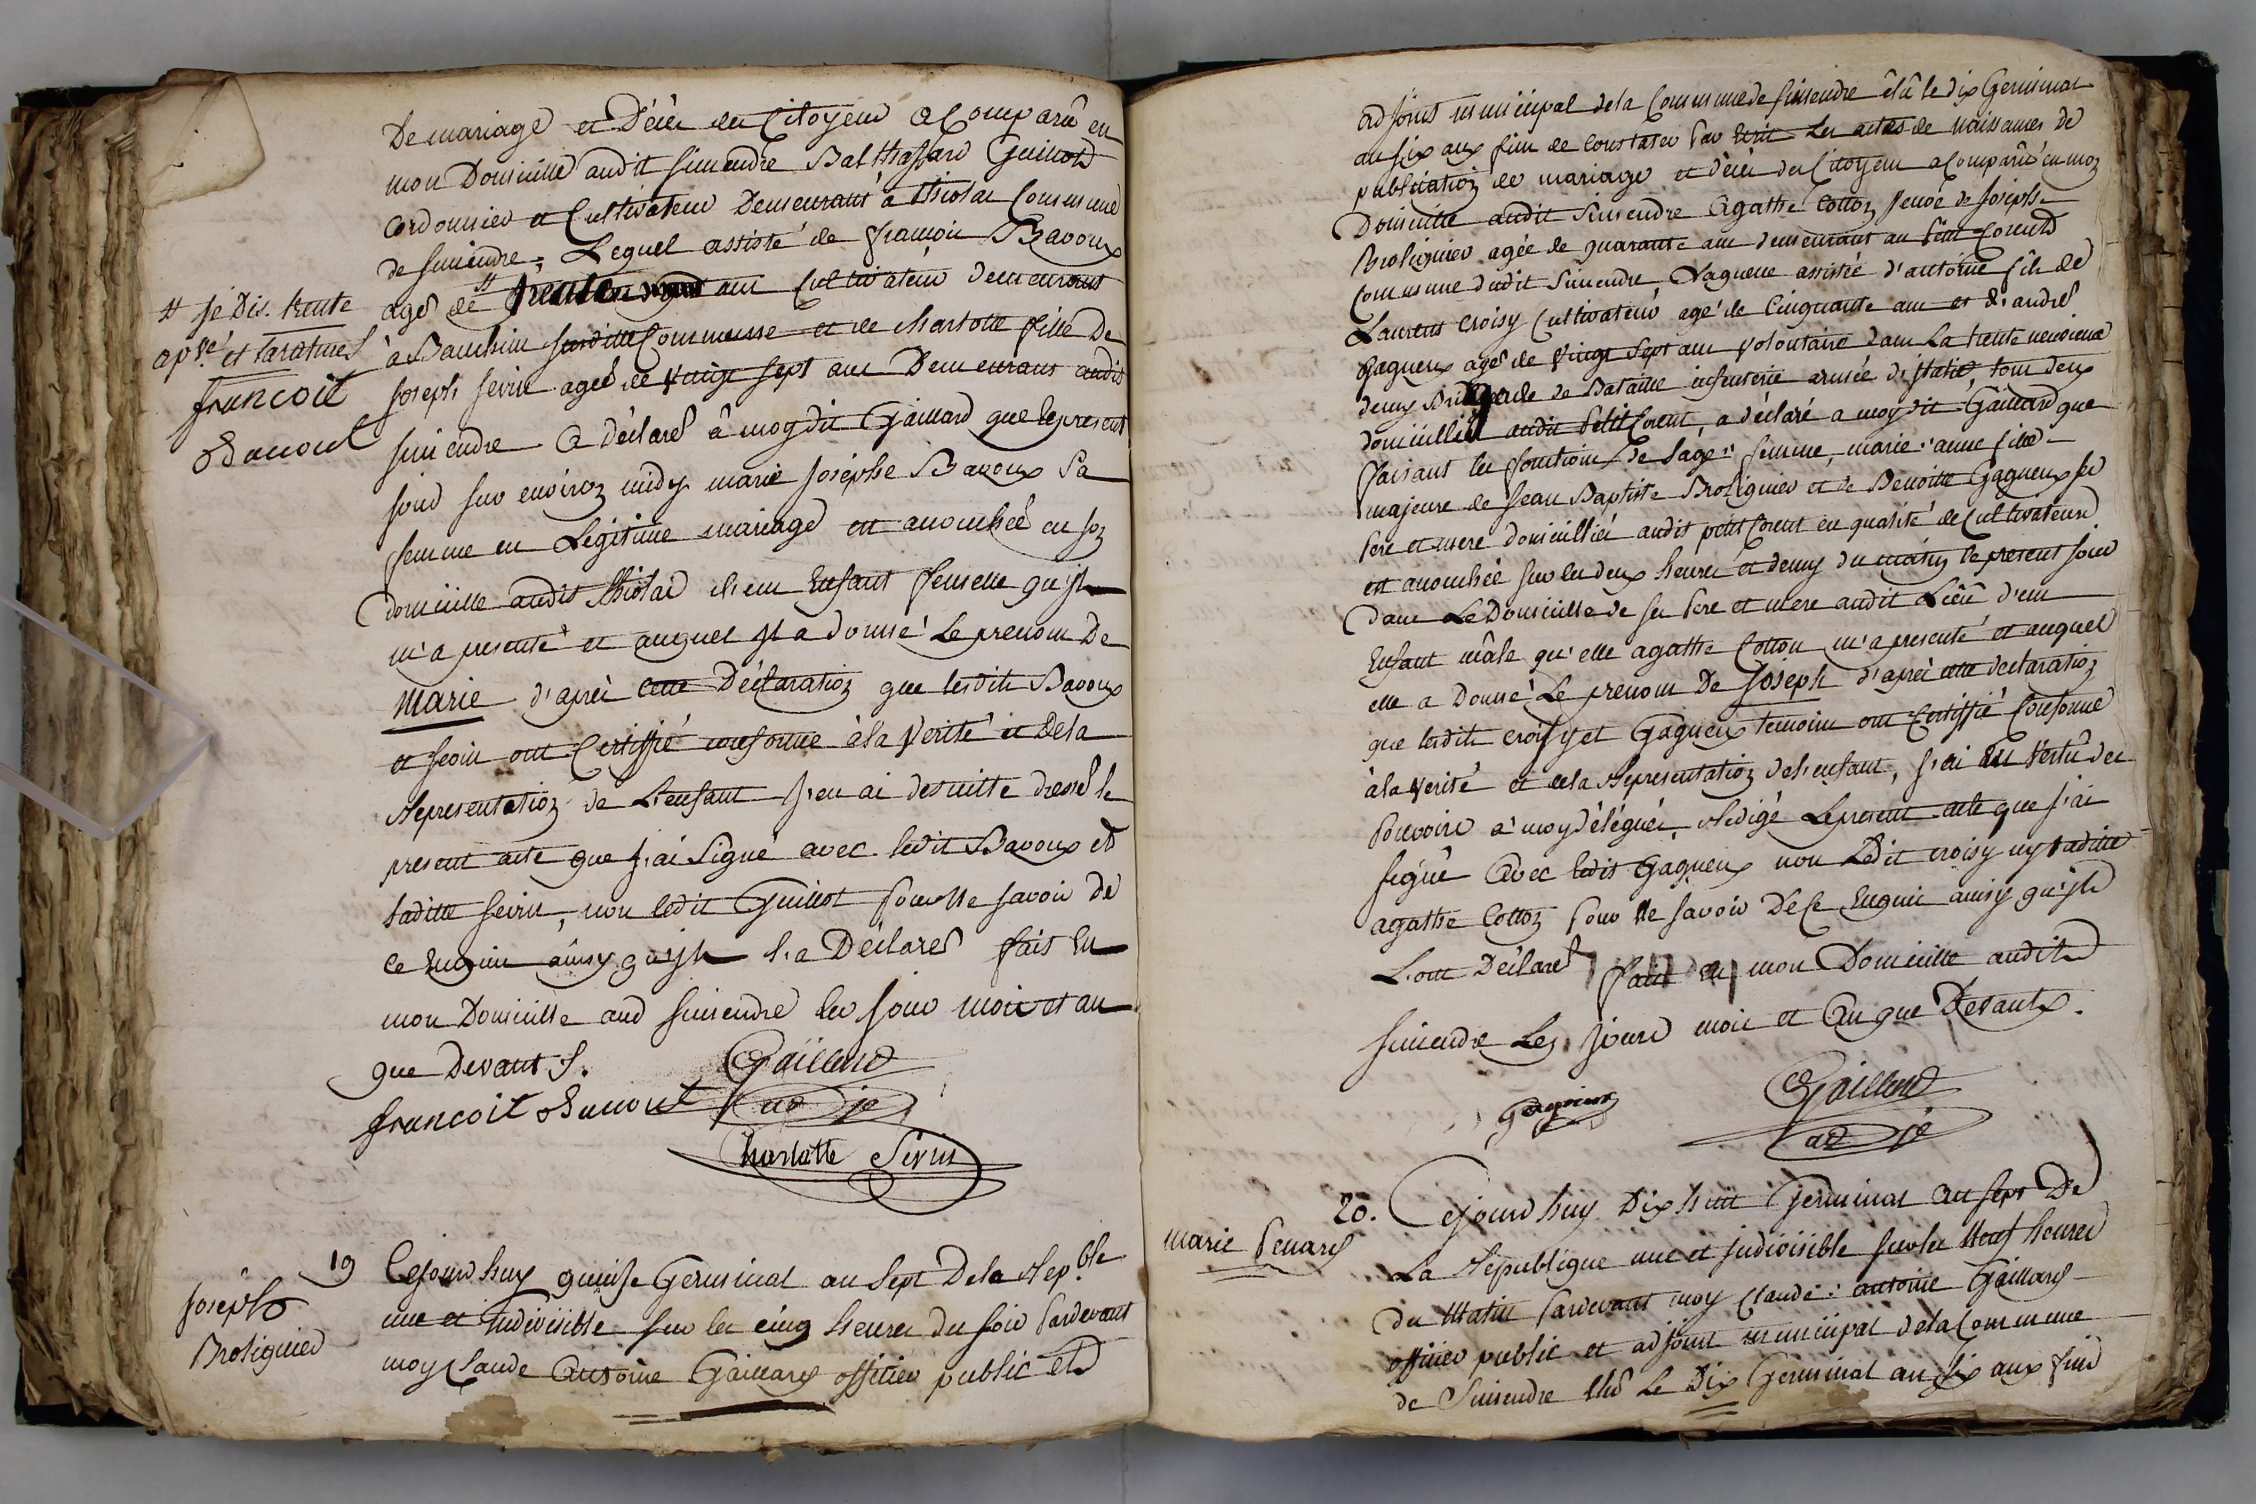 De mariage et Décès des Citoyens a Comparû en
mon Domicille audit Simendre Balthassard Guillot
Cordonnier et Cultivateur Demeurant à Thiolas Commune
de Simendre, Lequel assisté de francois Bavoux
agé de # trente ans Cultivateur demeurant
à Bauchin susditte Commune et de charlotte fille De
Joseph sevin agée de vingt sept ans Demeurant audit
simendre a déclaré à moy dit Gaillard que le present
jour sur environ midy marie Joséphe Bavoux Sa
femme en Légitime mariage est accouchée en son
domicille audit Thiolas d'un Enfant femelle qu'il
m'a presenté et auquel il a donné Le prenom De
Marie d'après cette Déclaration que lesdits Bavoux
et sevin ont Certiffié conforme à la Verité et de la
Representation de L'enfant J'en ai desuitte dressé le
present acte que j'ai Signé avec ledit Bavoux et
laditte sevin, non ledit Guillot pour Ne savoir de
ce Enquis ainsy qu'il l'a Déclaré fait En
mon Domicille aud simendre les jour mois et an
que Devant S.
Gaillard
adj
francoit Bauout
Charlotte Sevin
# je Dis. trente
apvé et ratures
francoit
Bauout
19
Joseph
Broliquier
Cejourd'huy quinse Germinal an sept De la Rep.ble
une et Indivisible sur les cinq heures du soir Pardevant
moy Claude Antoine Gaillard offitier public et
adjoint municipal de la Commune de simendre élû le dix Germinal
an six aux fins de Constater Par Ecrit Les actes de naissances de
publication de mariage et décès des Citoyens a Comparû en mon
Domicille audit Simendre Agathe Cotton veuve de Joseph
Broliquier agée de quarante ans demeurant au Petit Corent
Commune dudit Simendre Laquelle assistée d'antoine fils de
Laurent Croisy Cultivateur agé de Cinquante ans et d'andré
Gagneux agé de vingt sept ans volontaire dans La trente neuvieme
demy Brigade de Bataille infenterie armée d'Italie, tous deux
domicilliés audit Petit Corent, a déclaré a moy dit Gaillard que
faisant les fonctions de Sage femme, marie anne fille
majeure de Jean Baptiste Broliquier et de Benoitte Gagneux se
Pere et mere domicilliés audit petit Corent en qualité de Cultivateurs
est accouchée sur les deux heures et demy du matin le present jour
Dans Le Domicille de ses Pere et mere audit Lieu d'un
Enfant mâle qu'elle agathe Cotton m'a presenté et auquel
elle a Donné Le prenom De Joseph d'après cette declaration
que lesdits croisy et Gagneux temoins ont Certiffié Conforme
à la verité et de la Representation de l'enfant, j'ai En vertû des
Pouvoirs a moy délégués, Redigé Le present acte que j'ai
signé Avec ledit Gagneux non Ledit croisy ny laditte
agathe Cotton Pour Ne savoir De Ce Enquis ainsy qu'ils
L'ont Déclaré fait En mon Domicille audit
simendre Les Jours mois et An que Devant.
Gagneux
Gaillard
adj
20.
marie Penard
Cejourd'huy Dix huit Germinal An sept De
La République une et Indivisible sur les Neuf heures
du Matin Pardevant moy Claude antoine Gaillard
offitier public et adjoint municipal de la Commune
de Simendre Elû Le Dix Germinal an six aux fins